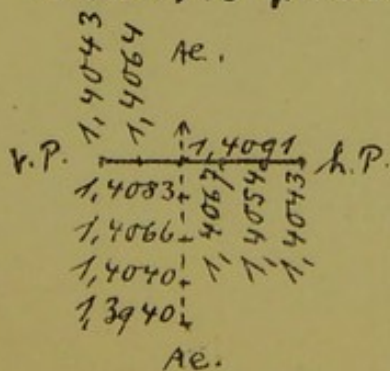 1,4043
1,4064
Ae.
v.P.
1,4091
h.P.
1,4083
1,4066
1,4040
1,3940
1,4067
1,4054
1,4043
Ae.